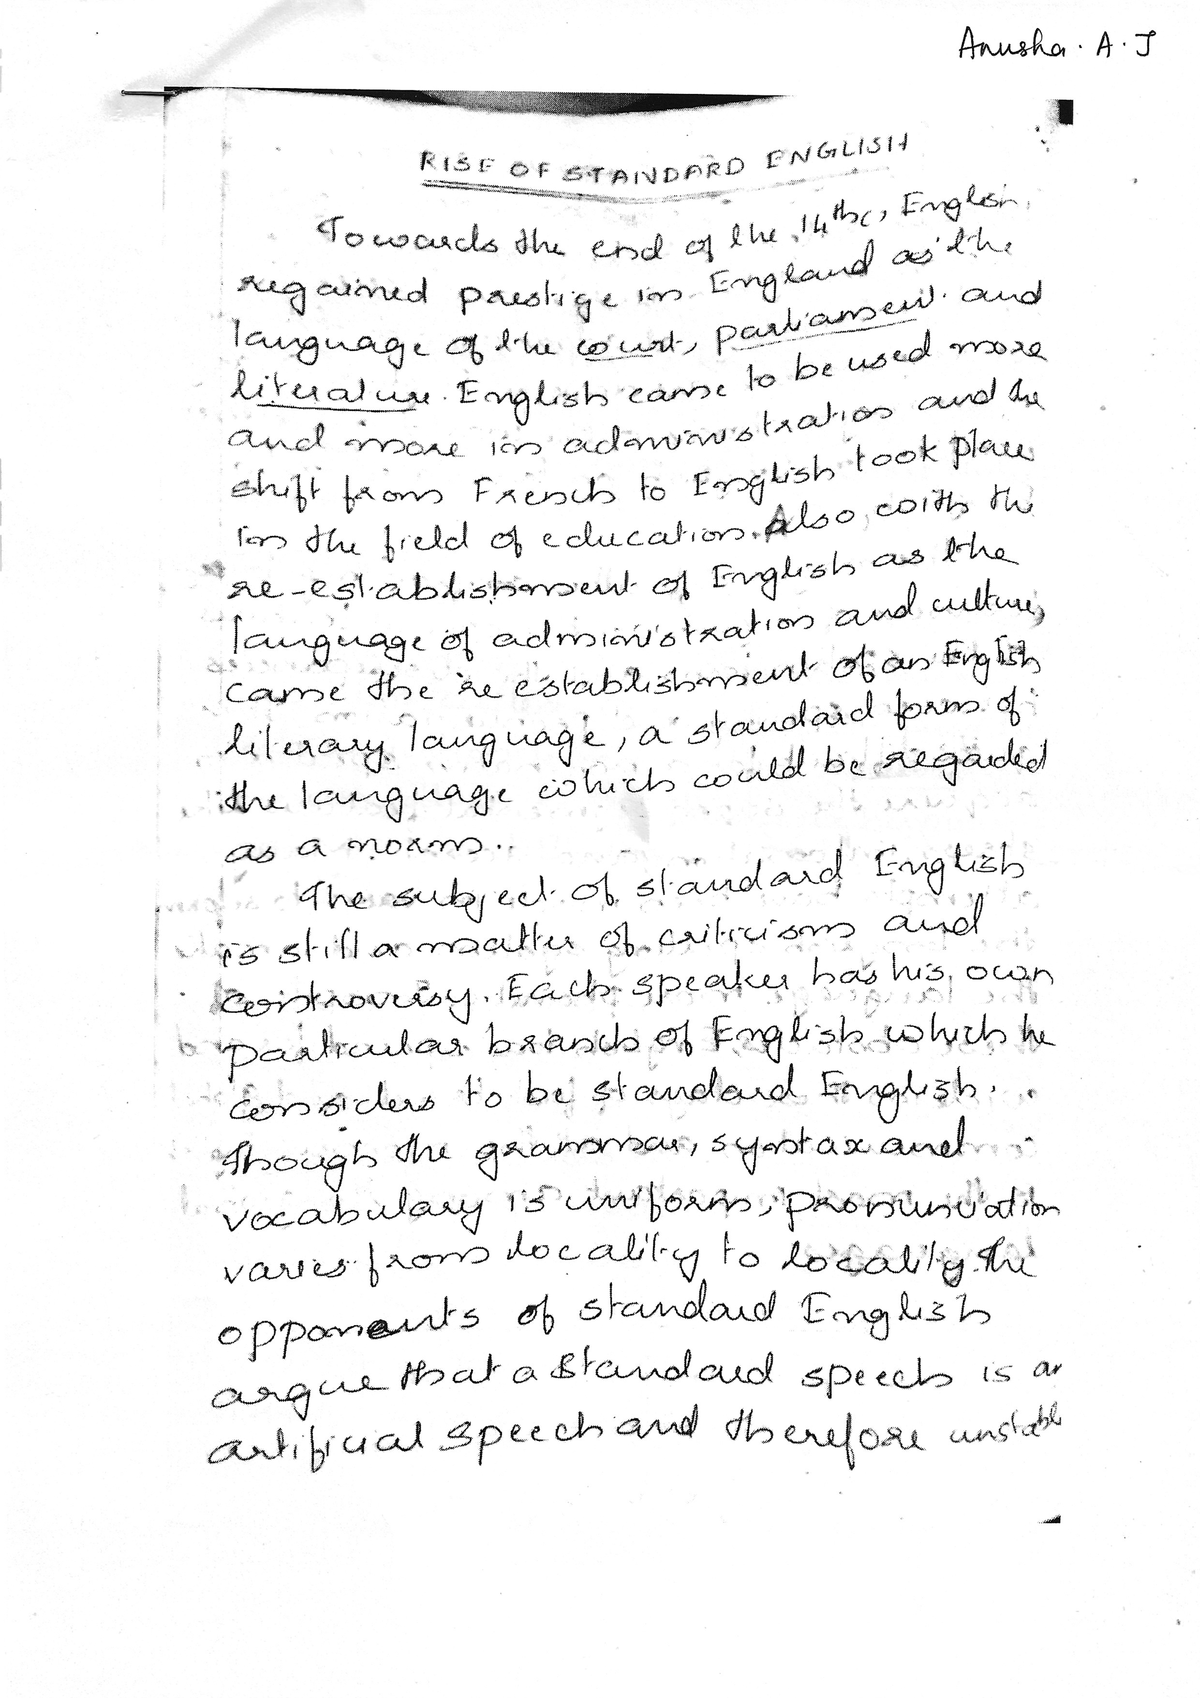 Anusha. A. J
RISE OF STANDARD ENGLISH
Towards the end of the 14thc, English
regained prestige in England as the
language of the court, parliament and
literature. English came to be used more
and more in administration and the
shift from French to English took place
in the field of education. Also, with the
re-establishment of English as the
language of administration and culture,
came the re establishment of an English
literary language, a standard form of
the language which could be regarded
as a norm.
The subject of standard English
is still a matter of criticism and
controversy. Each speaker has his own
particular branch of English which he
considers to be standard English.
Though the grammar, syntax and
vocabulary is uniform, pronunciation
varies from locality to locality. The
opponents of standard English
argue that a standard speech is an
artificial speech and therefore unstable